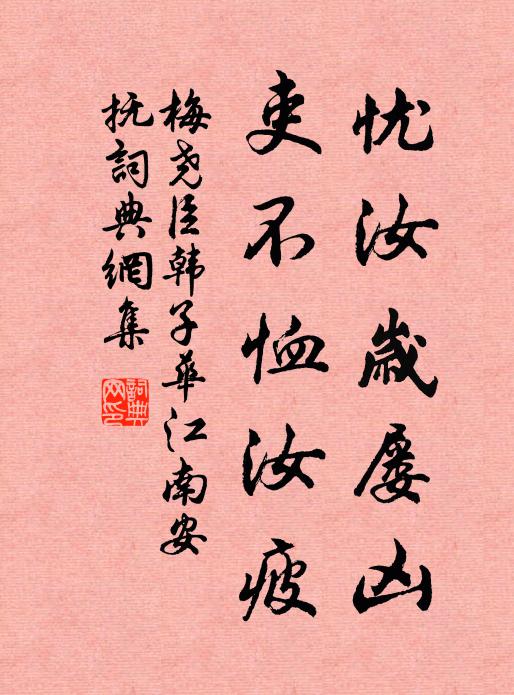 忧汝岁屡凶
吏不恤汝疲
梅尧臣韩子华江南安
抚詞典網集
詞典
网印